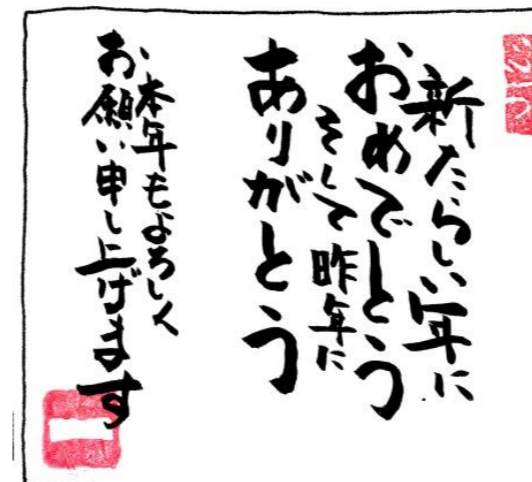 新たらしい年に
おめでとう
そして昨年に
ありがとう
本年もよろしく
お願い申し上げます